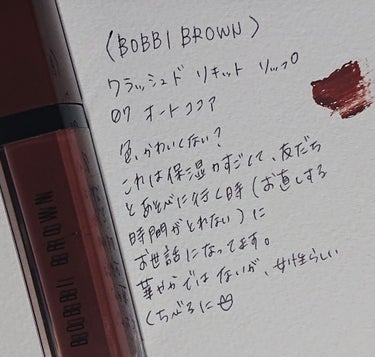 〈BOBBI BROWN〉
クラッシュド リキッド リップ
07 オートココア
色、かわいくない?
これは保湿力すごくて、友だち
とあそびに行く時(お直しする
時間がとれない)に
お世話になってます。
華やかではないが、女性らしい
くちびるに
BOBBI BROWN